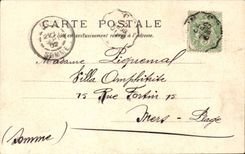 CARTE POSTALE
Ce côté est exclusivement réservé à l'adresse.
SOMME
Madame Liequemal
Villa Amphitrite
15 Rue Fortin 15
Mers-Plage
(Somme)